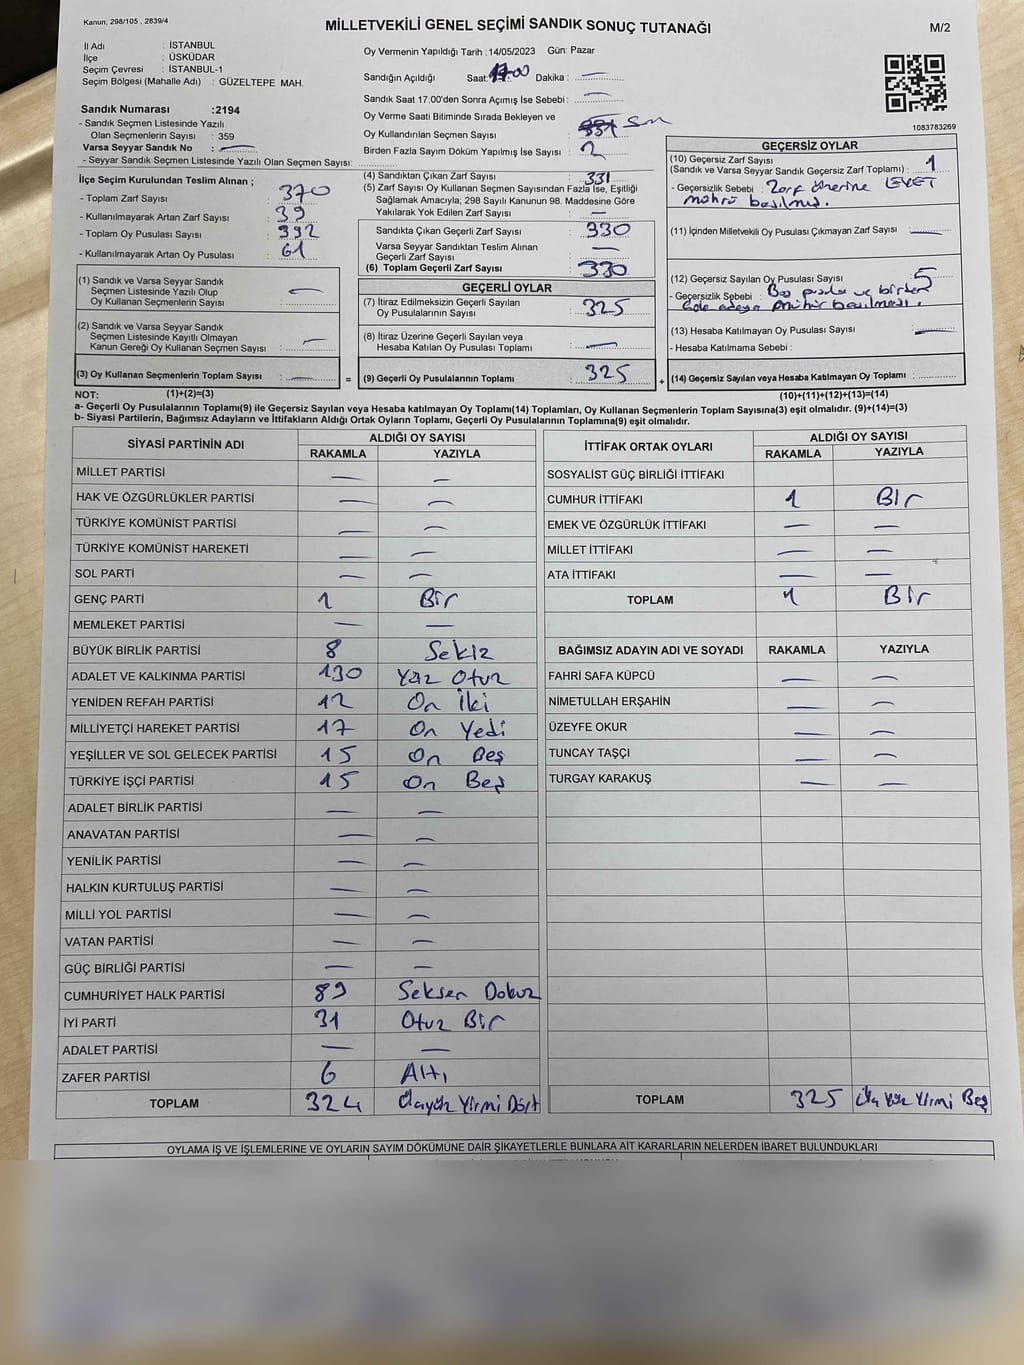 Kanun, 298/105 , 2839/4
MİLLETVEKİLİ GENEL SEÇİMİ SANDIK SONUÇ TUTANAĞI
M/2
İl Adı : İSTANBUL
İlçe : ÜSKÜDAR
Seçim Çevresi : İSTANBUL-1
Seçim Bölgesi (Mahalle Adı) : GÜZELTEPE MAH.
Oy Vermenin Yapıldığı Tarih :14/05/2023 Gün: Pazar
Sandığın Açıldığı Saat: 17:00 Dakika : —
Sandık Saat 17:00'den Sonra Açımış İse Sebebi : —
Oy Verme Saati Bitiminde Sırada Bekleyen ve
Oy Kullandırılan Seçmen Sayısı :
Birden Fazla Sayım Döküm Yapılmış İse Sayısı : 2
1083783269
Sandık Numarası :2194
- Sandık Seçmen Listesinde Yazılı
Olan Seçmenlerin Sayısı : 359
Varsa Seyyar Sandık No : —
- Seyyar Sandık Seçmen Listesinde Yazılı Olan Seçmen Sayısı:
İlçe Seçim Kurulundan Teslim Alınan ;
- Toplam Zarf Sayısı : 370
- Kullanılmayarak Artan Zarf Sayısı : 39
- Toplam Oy Pusulası Sayısı : 392
- Kullanılmayarak Artan Oy Pusulası : 61
(1) Sandık ve Varsa Seyyar Sandık
Seçmen Listesinde Yazılı Olup
Oy Kullanan Seçmenlerin Sayısı : —
(2) Sandık ve Varsa Seyyar Sandık
Seçmen Listesinde Kayıtlı Olmayan
Kanun Gereği Oy Kullanan Seçmen Sayısı : —
(3) Oy Kullanan Seçmenlerin Toplam Sayısı : — =
(4) Sandıktan Çıkan Zarf Sayısı : 331
(5) Zarf Sayısı Oy Kullanan Seçmen Sayısından Fazla İse, Eşitliği
Sağlamak Amacıyla; 298 Sayılı Kanunun 98. Maddesine Göre
Yakılarak Yok Edilen Zarf Sayısı : —
Sandıkta Çıkan Geçerli Zarf Sayısı : 330
Varsa Seyyar Sandıktan Teslim Alınan
Geçerli Zarf Sayısı : —
(6) Toplam Geçerli Zarf Sayısı : 330
GEÇERLİ OYLAR
(7) İtiraz Edilmeksizin Geçerli Sayılan
Oy Pusulalarının Sayısı : 325
(8) İtiraz Üzerine Geçerli Sayılan veya
Hesaba Katılan Oy Pusulası Toplamı : —
(9) Geçerli Oy Pusulalarının Toplamı : 325 +
GEÇERSİZ OYLAR
(10) Geçersiz Zarf Sayısı
(Sandık ve Varsa Seyyar Sandık Geçersiz Zarf Toplamı) : 1
- Geçersizlik Sebebi : Zarf üzerine EVET
mührü basılmış.
(11) İçinden Milletvekili Oy Pusulası Çıkmayan Zarf Sayısı : —
(12) Geçersiz Sayılan Oy Pusulası Sayısı : 5
- Geçersizlik Sebebi : Boş pusula ve birden
mühür basılması.
(13) Hesaba Katılmayan Oy Pusulası Sayısı : —
- Hesaba Katılmama Sebebi :
(14) Geçersiz Sayılan veya Hesaba Katılmayan Oy Toplamı :
NOT: (1)+(2)=(3) (10)+(11)+(12)+(13)=(14)
a- Geçerli Oy Pusulalarının Toplamı(9) ile Geçersiz Sayılan veya Hesaba katılmayan Oy Toplamı(14) Toplamları, Oy Kullanan Seçmenlerin Toplam Sayısına(3) eşit olmalıdır. (9)+(14)=(3)
b- Siyasi Partilerin, Bağımsız Adayların ve İttifakların Aldığı Ortak Oyların Toplamı, Geçerli Oy Pusulalarının Toplamına(9) eşit olmalıdır.
SİYASİ PARTİNİN ADI ALDIĞI OY SAYISI
RAKAMLA YAZIYLA
MİLLET PARTİSİ — —
HAK VE ÖZGÜRLÜKLER PARTİSİ — —
TÜRKİYE KOMÜNİST PARTİSİ — —
TÜRKİYE KOMÜNİST HAREKETİ — —
SOL PARTİ — —
GENÇ PARTİ 1 Bir
MEMLEKET PARTİSİ — —
BÜYÜK BİRLİK PARTİSİ 8 Sekiz
ADALET VE KALKINMA PARTİSİ 130 Yüz Otuz
YENİDEN REFAH PARTİSİ 12 On İki
MİLLİYETÇİ HAREKET PARTİSİ 17 On Yedi
YEŞİLLER VE SOL GELECEK PARTİSİ 15 On Beş
TÜRKİYE İŞÇİ PARTİSİ 15 On Beş
ADALET BİRLİK PARTİSİ — —
ANAVATAN PARTİSİ — —
YENİLİK PARTİSİ — —
HALKIN KURTULUŞ PARTİSİ — —
MİLLİ YOL PARTİSİ — —
VATAN PARTİSİ — —
GÜÇ BİRLİĞİ PARTİSİ — —
CUMHURİYET HALK PARTİSİ 89 Seksen Dokuz
İYİ PARTİ 31 Otuz Bir
ADALET PARTİSİ — —
ZAFER PARTİSİ 6 Altı
TOPLAM 324 Üçyüz Yirmi Dört
İTTİFAK ORTAK OYLARI ALDIĞI OY SAYISI
RAKAMLA YAZIYLA
SOSYALİST GÜÇ BİRLİĞİ İTTİFAKI
CUMHUR İTTİFAKI 1 Bir
EMEK VE ÖZGÜRLÜK İTTİFAKI — —
MİLLET İTTİFAKI — —
ATA İTTİFAKI — —
TOPLAM 1 Bir
BAĞIMSIZ ADAYIN ADI VE SOYADI RAKAMLA YAZIYLA
FAHRİ SAFA KÜPCÜ — —
NİMETULLAH ERŞAHİN — —
ÜZEYFE OKUR — —
TUNCAY TAŞÇI — —
TURGAY KARAKUŞ — —
TOPLAM 325 Üç Yüz Yirmi Beş
OYLAMA İŞ VE İŞLEMLERİNE VE OYLARIN SAYIM DÖKÜMÜNE DAİR ŞİKAYETLERLE BUNLARA AİT KARARLARIN NELERDEN İBARET BULUNDUKLARI